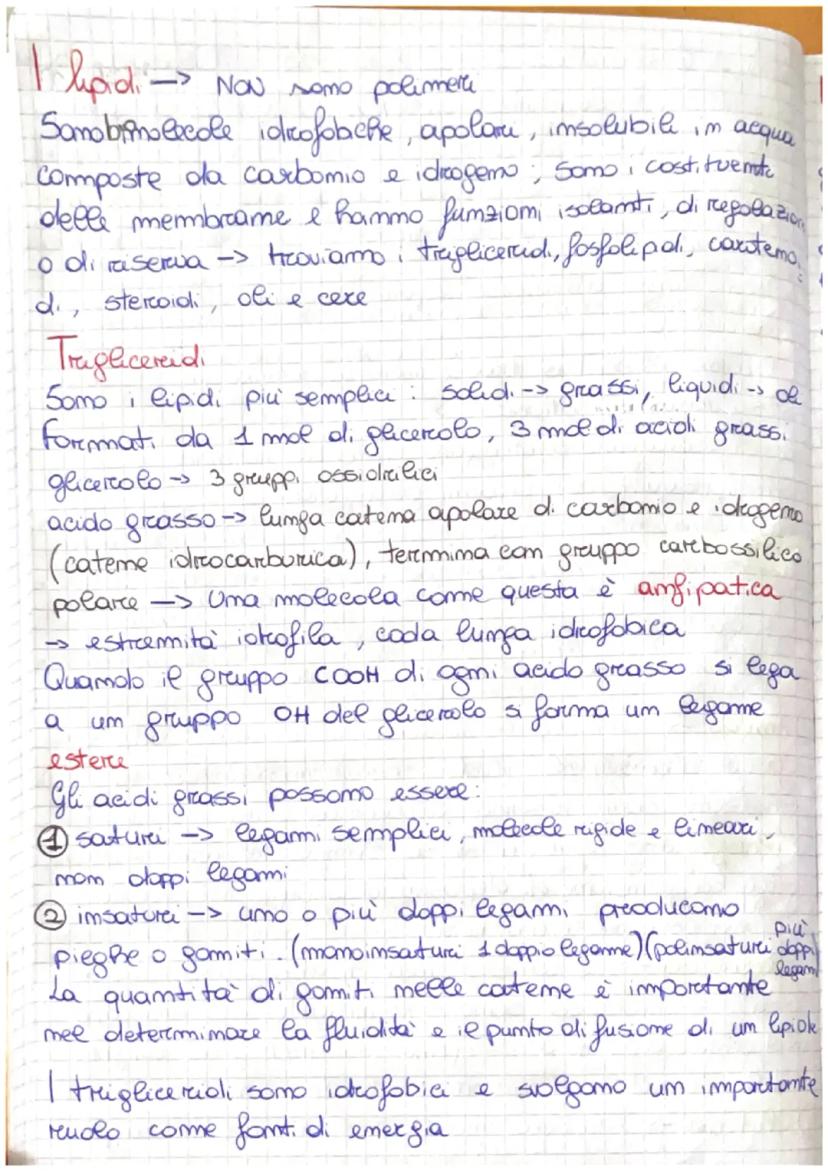 I lipidi -> NON sono polimeri
Sono biomolecole idrofobiche, apolari, insolubili in acqua
composte da carbonio e idrogeno; sono i costituenti
delle membrane e hanno funzioni isolanti, di regolazion
o di riserva -> troviamo i trigliceridi, fosfolipidi, caroteno
di, steroidi, oli e cere
Trigliceridi
Sono i lipidi più semplici: solidi -> grassi, liquidi -> oli
formati da 1 mol di glicerolo, 3 mol di acidi grassi
glicerolo -> 3 gruppi ossidrilici
acido grasso -> lunga catena apolare di carbonio e idrogeno
(catene idrocarburica), termina con gruppo carbossilico
polare -> Una molecola come questa è anfipatica
-> estremità idrofila, coda lunga idrofobica
Quando il gruppo COOH di ogni acido grasso si lega
a un gruppo OH del glicerolo si forma un legame
estere
Gli acidi grassi possono essere:
① saturi -> legami semplici, molecole rigide e lineari,
non doppi legami
② insaturi -> uno o più doppi legami producono
pieghe o gomiti. (monoinsaturi 1 doppio legame) (polinsaturi più doppi legami
La quantità di gomiti nelle catene è importante
nel determinare la fluidità e il punto di fusione di un lipide
I trigliceridi sono idrofobici e svolgono un importante
ruolo come fonti di energia